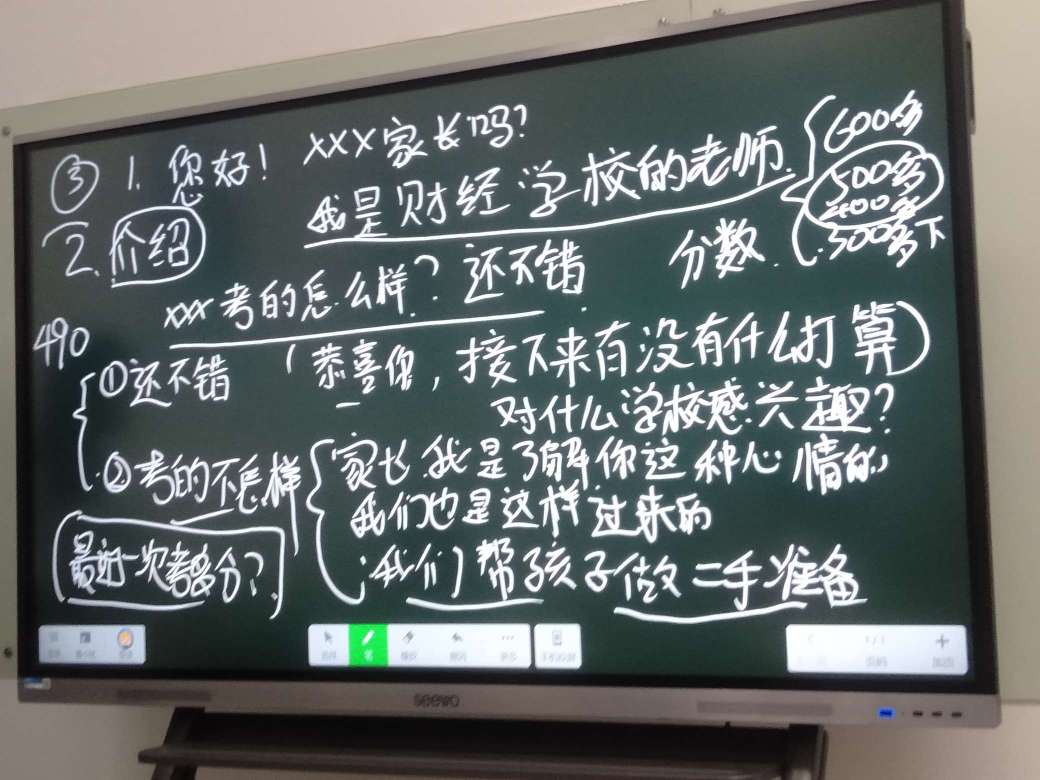 ③ 1. 您好! XXX家长吗?
我是财经学校的老师.
600多
500多
400多
300多下
2. 介绍
分数
xxx考的怎么样? 还不错
490
①还不错 (恭喜你, 接下来有没有什么打算)
对什么学校感兴趣?
②考的不怎样
家长 我是了解你这种心情的,
我们也是这样过来的
我们帮孩子做二手准备
最近一次考多分?
1/1
页码
seewo